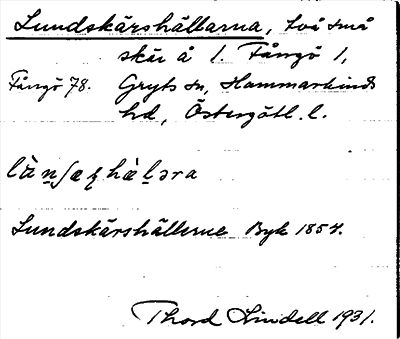 Lundskärshällarna, två små
skär å l. Fångö 1,
Fångö 78. Gryts sn, Hammarkinds
hd, Östergötl. l.
Lundskärshällerne Byk 1857.
Thord Lindell 1931.